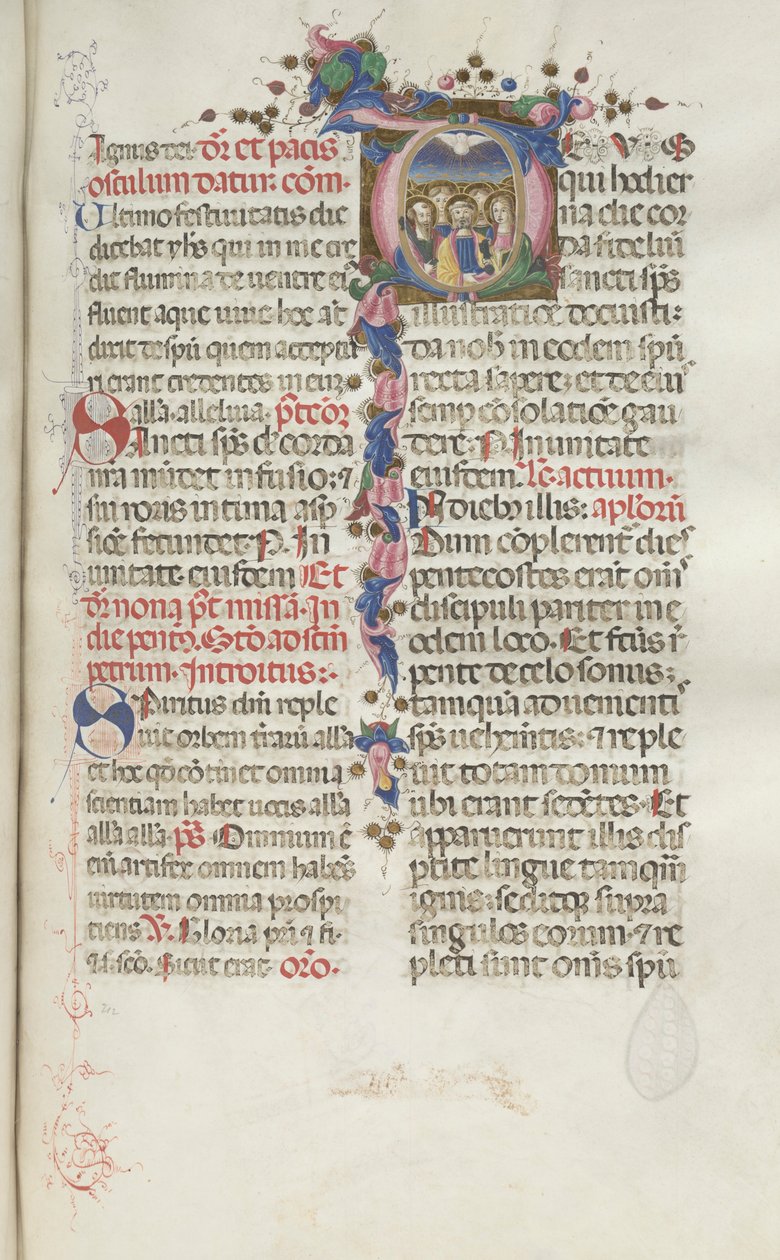 Agnus dei. dr̄ et pacis
osculum datur. cōm̄.
Ultimo festiuitatis die
dicebat yh̄s qui in me cre
dit flumina de uentre eiꝰ
fluent aque uiue hoc aūt
dixit de sp̄u quem acceptu
ri erant credentes in eum
all'a. alleluia. p̄t cōr
Sancti sp̄s dn̄e corda
nr̄a mūdet infusio: ⁊
sui roris intima asp̄
siōe fecundet. P̱. In
unitate. eiusdem Et
dr̄ nona p̄t missā. In
die pent̄. Stō ad scm̄
petrum. Introitus:.
Spiritus dn̄i reple
uit orbem tr̄arū all'a
et hoc qd̄ cōtinet omnia
scientiam habet uocis all'a
all'a all'a. p̄s Omnium ē
eni artifex omnem habēs
uirtutem omnia prospi
ciens V̄. Gloria pr̄i ⁊ fi.
⁊ s. scō. Sicut erat. or̄o.
DEVS
qui hodier
na die cor
da fideliū
sancti sp̄s
illustratiōe docuisti:
da nob̄ in eodem sp̄u
recta sapere; et de eiuꝰ
semp̄ cōsolatiōe gau
dere. P̱ In unitate
eiusdem. Lc̄. actuum.
IN dieb; illis: apl'orū
Dum cōplerent̄ dieꝰ
pentecostes erāt om̄s
discipuli pariter in e
odem loco. Et fc̄us ē re
pente de celo sonus;
tamquā aduenientiꝰ
sp̄s uehem̄tis: ⁊ reple
uit totam domum
ubi erant sedētes. Et
apparuerunt illis dis
ptite lingue tamquā
ignis; seditq; supra
singulos eorum. ⁊ re
pleti sunt om̄s sp̄u
212